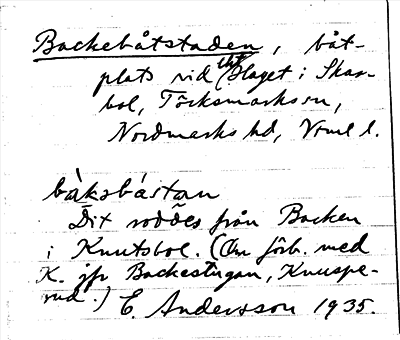 Backebåtstaden, båt-
plats vid Slaget i Skar-
bol, Töcksmarks sn,
Nordmarks hd, Vrml l.
bàksbástan
Dit roddes från Backen
i Knutsbol. (Om förb. med
K. jfr Backestugan, Knuspe-
rud.) E. Andersson 1935.